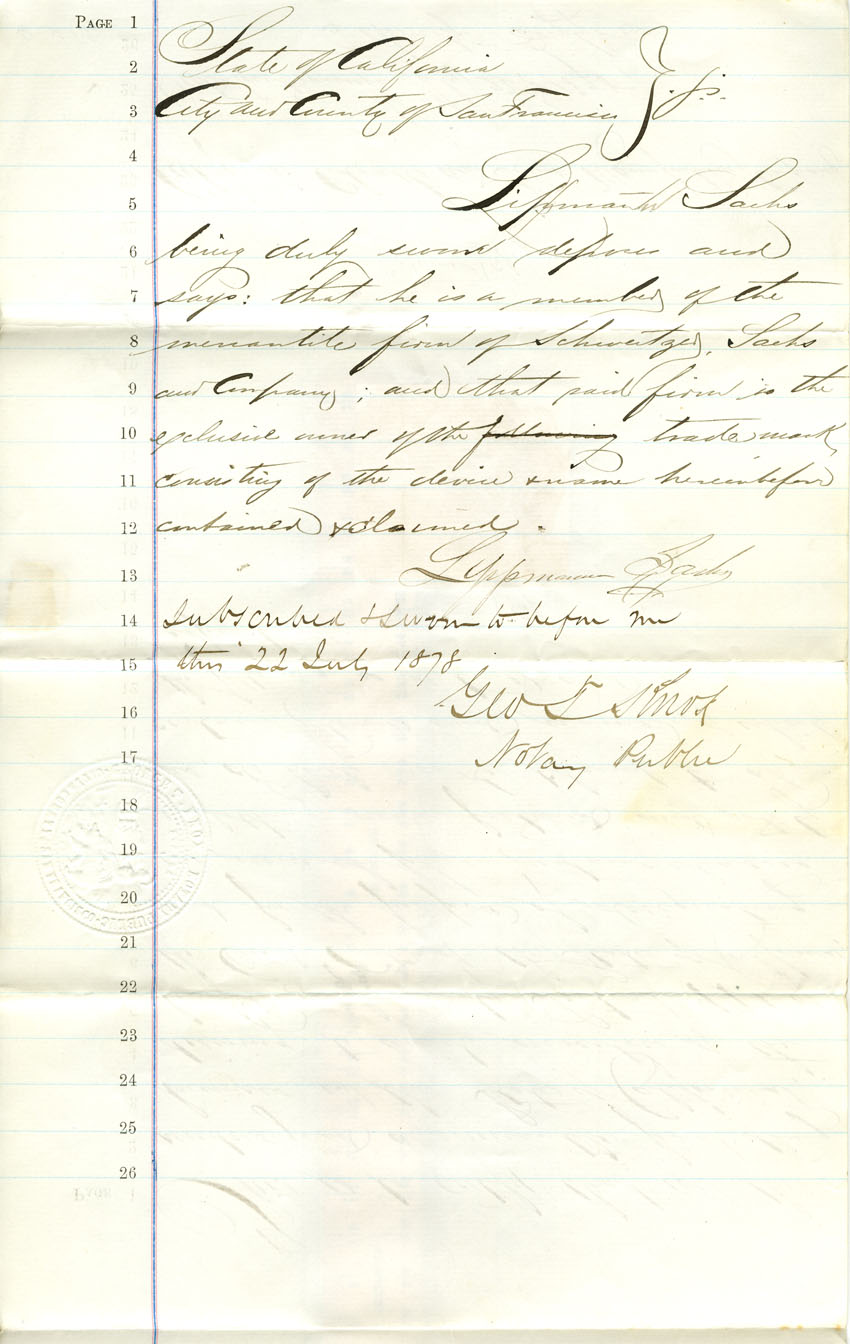 PAGE 1
2 State of California } s.s.
3 City and County of San Francisco
4
5 Lippmann Sachs
6 being duly sworn deposes and
7 says: that he is a member of the
8 mercantile firm of Schweitzer, Sachs
9 and Company; and that said firm is the
10 exclusive owner of the following trade mark,
11 consisting of the device & name hereinbefore
12 contained & claimed.
13 Lippmann Sachs
14 Subscribed & sworn to before me
15 this 22 July 1878
16 Geo T Knox
17 Notary Public
18
19
20
21
22
23
24
25
26